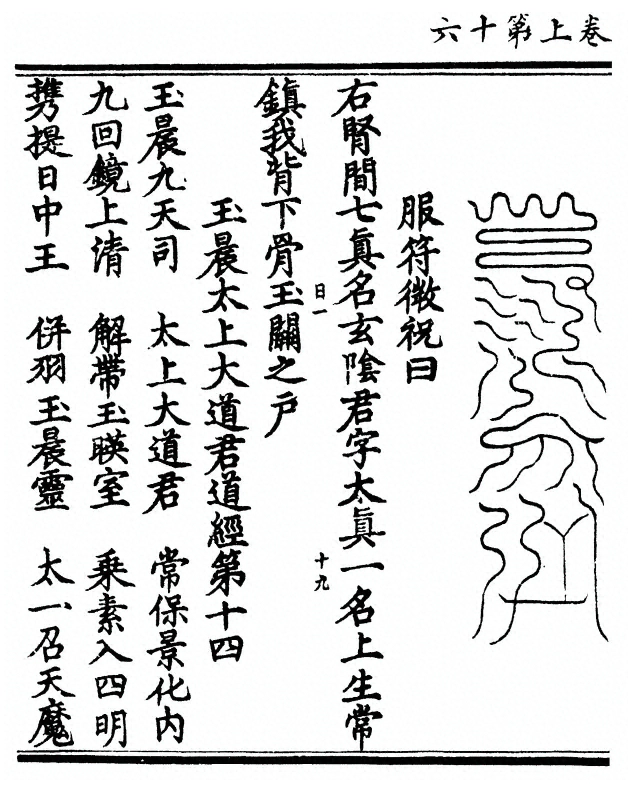 卷上第十六
服符微祝曰
右腎間七真名玄陰君字太真一名上生常
鎮我背下骨玉關之戶
日一
十九
玉晨太上大道君道經第十四
玉晨九天司 太上大道君 常保景化內
九回鏡上清 解帶玉暎室 乘素入四明
携提日中王 併羽玉晨靈 太一召天魔